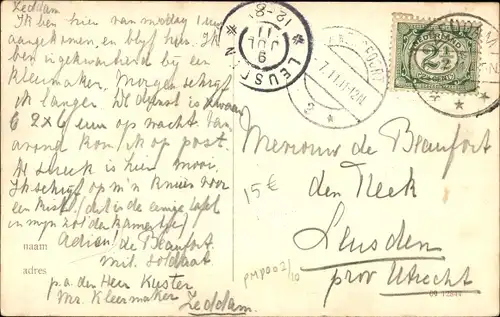 Zeddam
Ik ben hier van middag 1 uur
aangekomen, en blijf hier. Ik
ben ingekwartierd bij een
kleermaker. Morgen schrijf
ik langer. De dienst is zwaar
6 2x6 uur op wacht. Van
avond kom ik op post.
De streek is hier mooi.
Ik schrijf op m'n knieën voor
een kist, dit is de eenige tafel
in mijn zolderkamertje!
naam Adieu, de Beaufort.
mil. soldaat
adres p.a. den Heer Kuster
Mr. Kleermaker
Zeddam.
12-8
LEUSDEN
9 JUL 11
7.11 11-12N
NEDERLAND
2½
Mevrouw de Beaufort
den Treek
Leusden
prov Utrecht
15€
PMP002/10